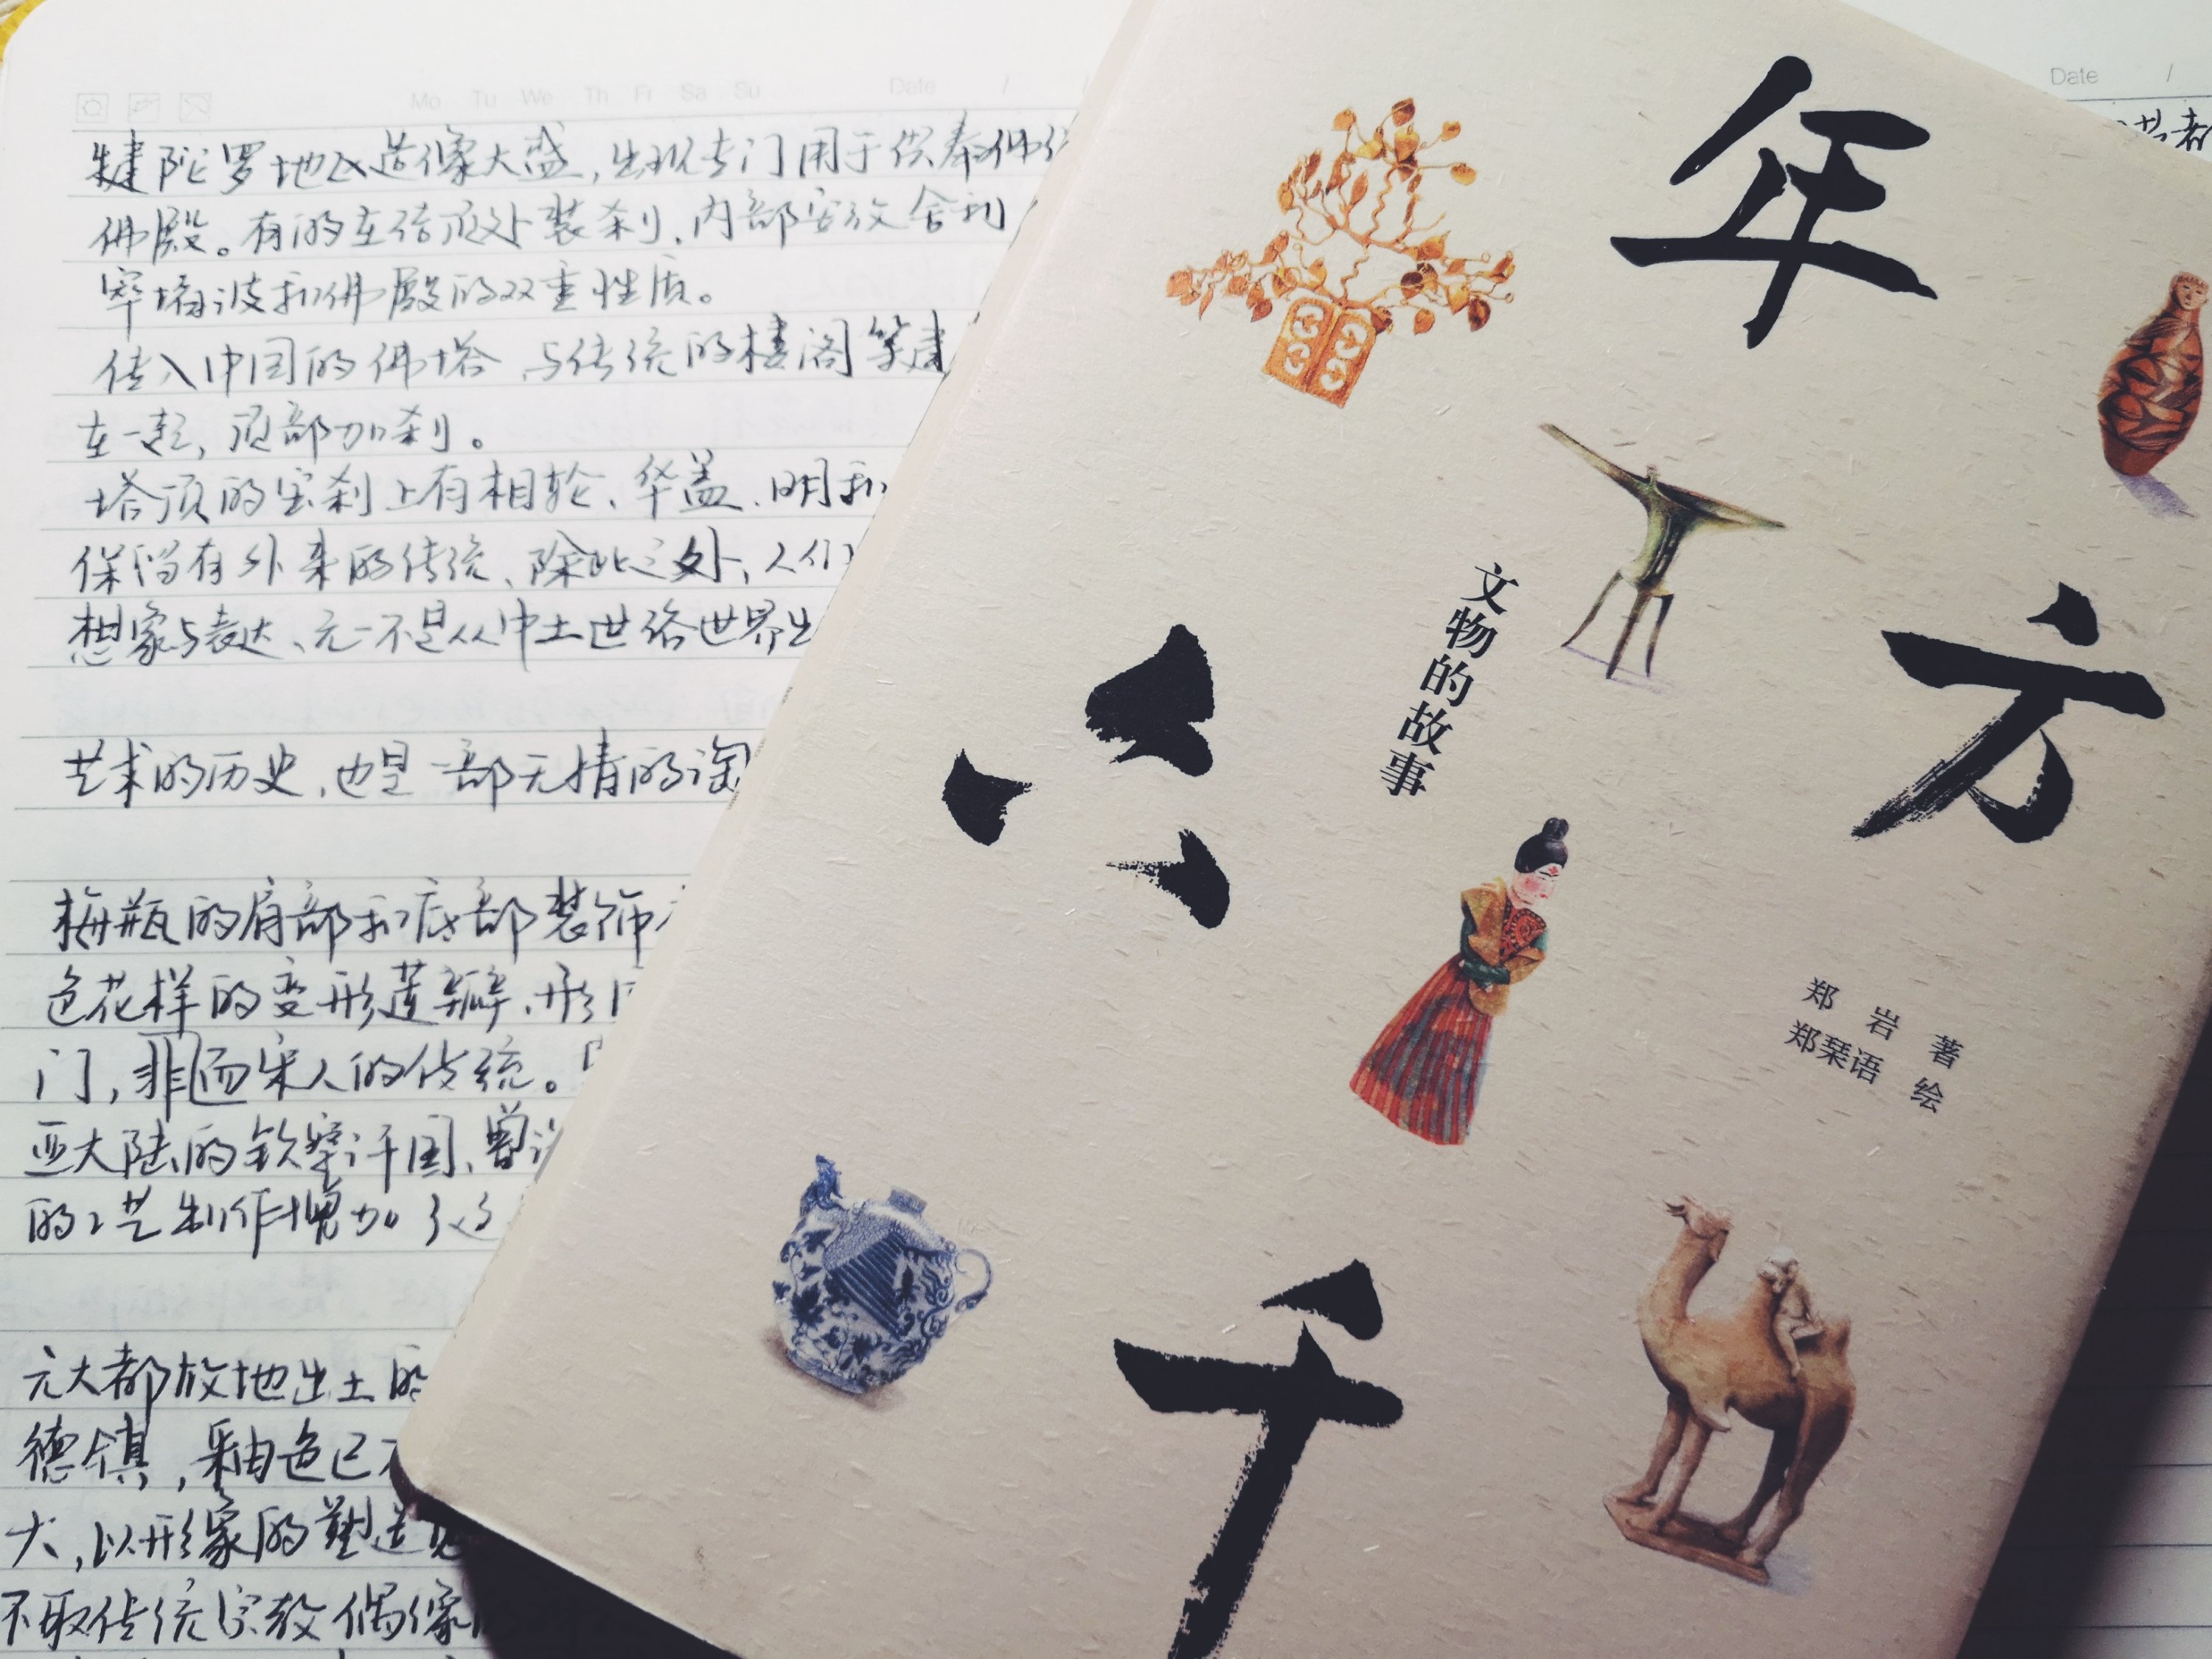 Mo Tu We Th Fr Sa Su Date / /
犍陀罗地区造像大盛,出现专门用于供奉佛
佛殿。有的在塔顶处装刹,内部安放舍利
窣堵波和佛殿的双重性质。
传入中国的佛塔,与传统的楼阁
在一起,顶部加刹。
塔顶的宝刹上有相轮、华盖、明和
保留有外来的传统、除此之外,人们
想象与表达、无一不是从中土世俗世界出
艺术的历史,也是一部无情的淘
梅瓶的肩部和底部装饰
色花样的变形莲瓣,形
门,非 而宋人的传统。
亚大陆的钦察汗国、曾
的工艺制作增加了
元大都故地出土的
德镇,釉色已不
大,以形象的塑造见
不取传统宗教偶像
Date /
者
年
方
六
千
文物的故事
郑 岩 著
郑琹语 绘